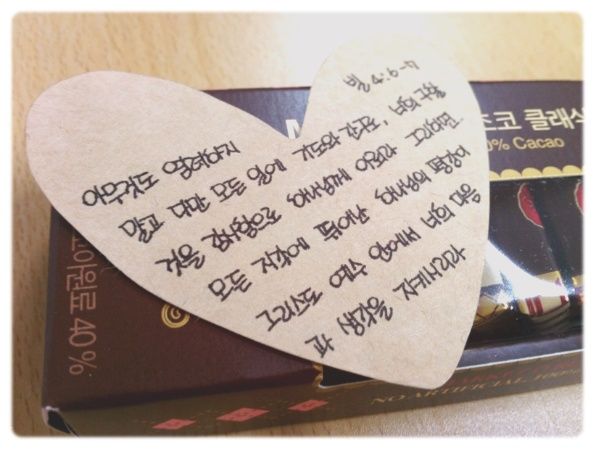 빌 4:6-7
아무것도 염려하지
말고 다만 모든 일에 기도와 간구로, 너희 구할
것을 감사함으로 하나님께 아뢰라 그리하면
모든 지각에 뛰어난 하나님의 평강이
그리스도 예수 안에서 너희 마음
과 생각을 지키시리라
초코 클래식
0% Cacao
코아원료 40%
NO ARTIFICIAL